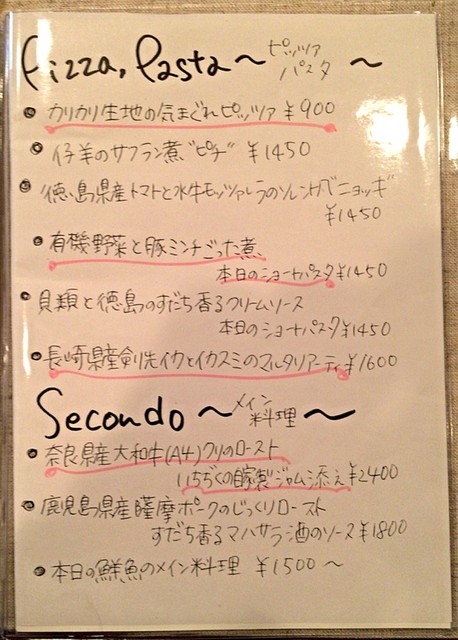 Pizza, Pasta〜ピッツァ
パスタ 〜
● カリカリ生地の気まぐれピッツァ ¥900
● 仔羊のサフラン煮"ピチ" ¥1450
● 徳島県産トマトと水牛モッツァレラのソレントベーニョッキ
¥1450
● 有機野菜と豚ミンチごった煮
本日のショートパスタ¥1450
● 貝類と徳島のすだち香るクリームソース
本日のショートパスタ¥1450
● 長崎県産剣先イカとイカスミのマルタリアーティ¥1600
Secondo 〜メイン
料理 〜
● 奈良県産大和牛(A4)クリのロースト
いちぢくの自家製ジャム添え¥2400
● 鹿児島県産薩摩ポークのじっくりロースト
すだち香るマルサラ酒のソース¥1800
● 本日の鮮魚のメイン料理 ¥1500〜